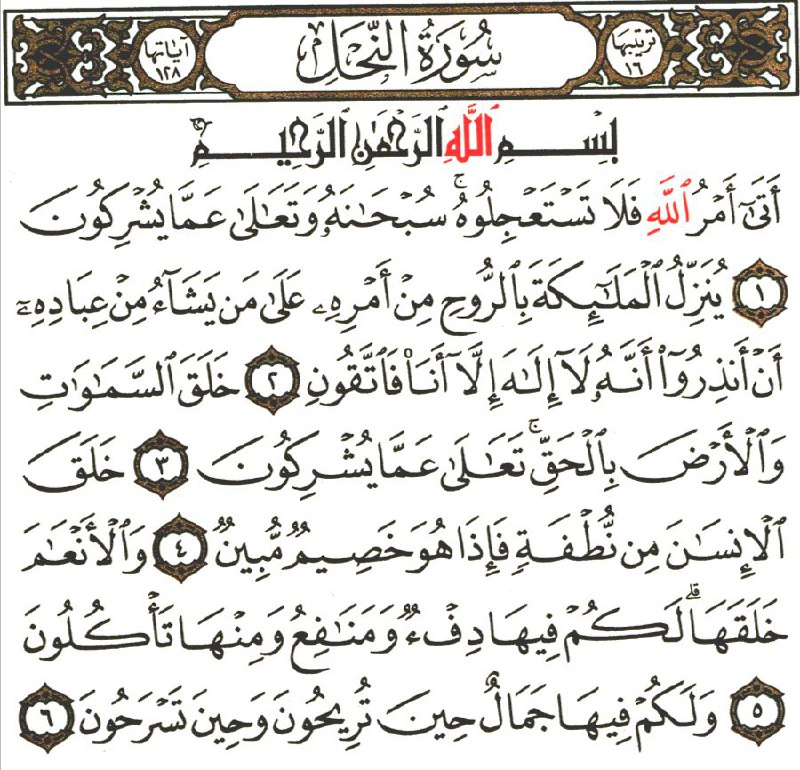 ترتيبها ١٦ سُورَةُ النَّحْلِ آياتها ١٢٨
بِسْمِ ٱللَّهِ ٱلرَّحْمَٰنِ ٱلرَّحِيمِ
أَتَىٰٓ أَمْرُ ٱللَّهِ فَلَا تَسْتَعْجِلُوهُ ۚ سُبْحَٰنَهُۥ وَتَعَٰلَىٰ عَمَّا يُشْرِكُونَ
١ يُنَزِّلُ ٱلْمَلَٰٓئِكَةَ بِٱلرُّوحِ مِنْ أَمْرِهِۦ عَلَىٰ مَن يَشَآءُ مِنْ عِبَادِهِۦٓ
أَنْ أَنذِرُوٓا۟ أَنَّهُۥ لَآ إِلَٰهَ إِلَّآ أَنَا۠ فَٱتَّقُونِ ٢ خَلَقَ ٱلسَّمَٰوَٰتِ
وَٱلْأَرْضَ بِٱلْحَقِّ ۚ تَعَٰلَىٰ عَمَّا يُشْرِكُونَ ٣ خَلَقَ
ٱلْإِنسَٰنَ مِن نُّطْفَةٍ فَإِذَا هُوَ خَصِيمٌ مُّبِينٌ ٤ وَٱلْأَنْعَٰمَ
خَلَقَهَا ۗ لَكُمْ فِيهَا دِفْءٌ وَمَنَٰفِعُ وَمِنْهَا تَأْكُلُونَ
٥ وَلَكُمْ فِيهَا جَمَالٌ حِينَ تُرِيحُونَ وَحِينَ تَسْرَحُونَ ٦